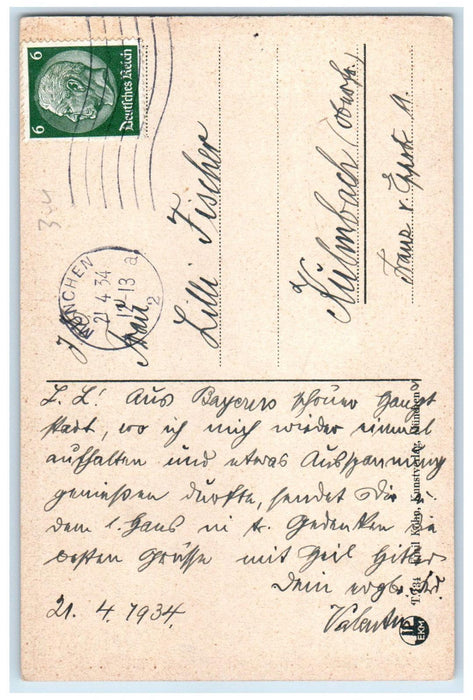 6 Deutsches Reich 6
MÜNCHEN
21 4 34
12-13 a
2
344
Frau
Lilli Fischer
Kulmbach
Franz v.
L. L.! Aus Bayerns schöner Haupt
stadt, wo ich mich wieder einmal
aufhalten und etwas Ausspannung
genießen durfte, sendet Dir u.
dem l. Hans in tr. Gedenken die
besten Grüße mit Heil Hitler
Dein
Valentin
21. 4. 1934.
Kunstverlag, München
EKM